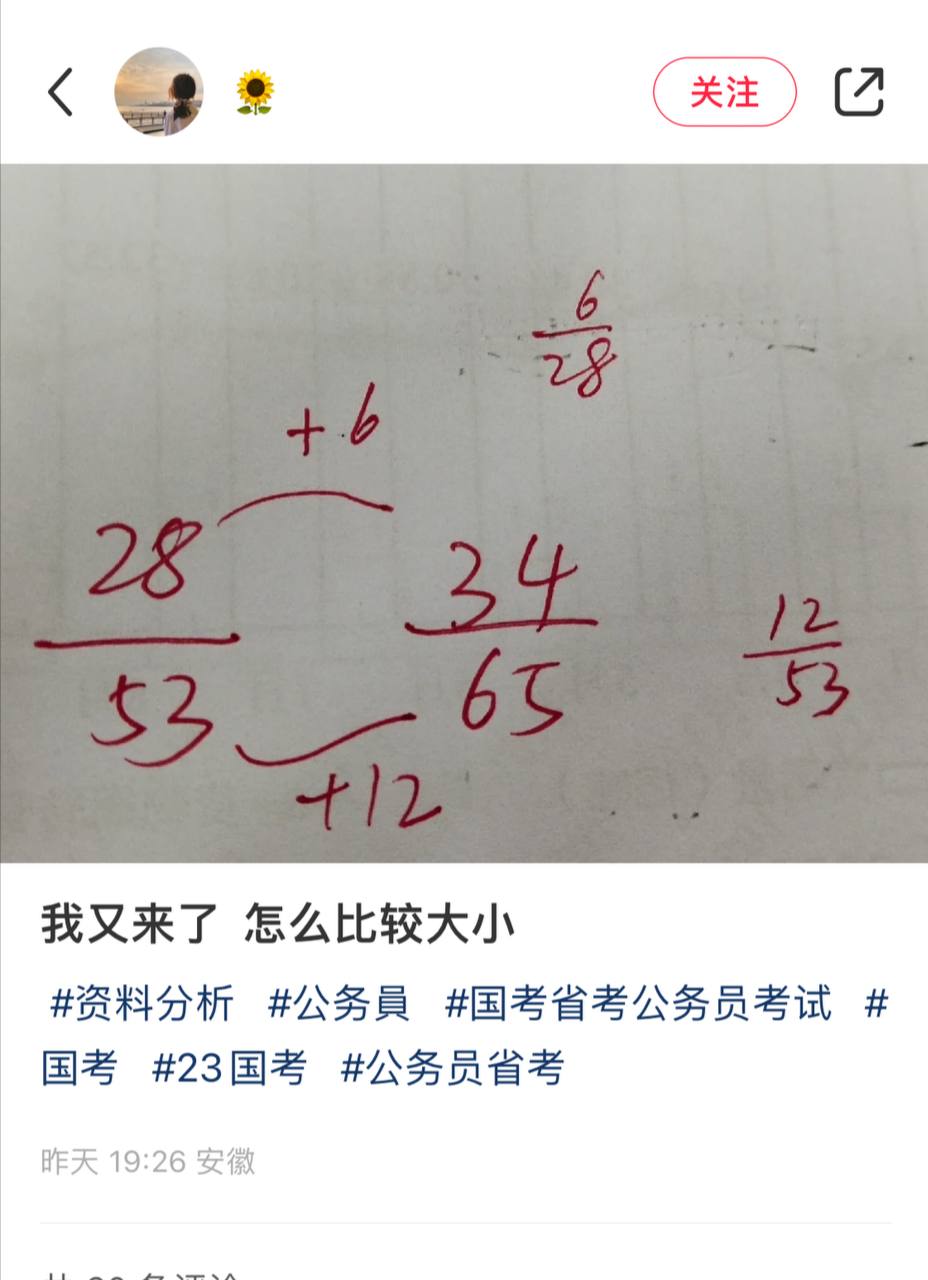 关注
6
28
+6
28
53
34
65
12
53
+12
我又来了 怎么比较大小
#资料分析 #公务員 #国考省考公务员考试 #
国考 #23国考 #公务员省考
昨天 19:26 安徽